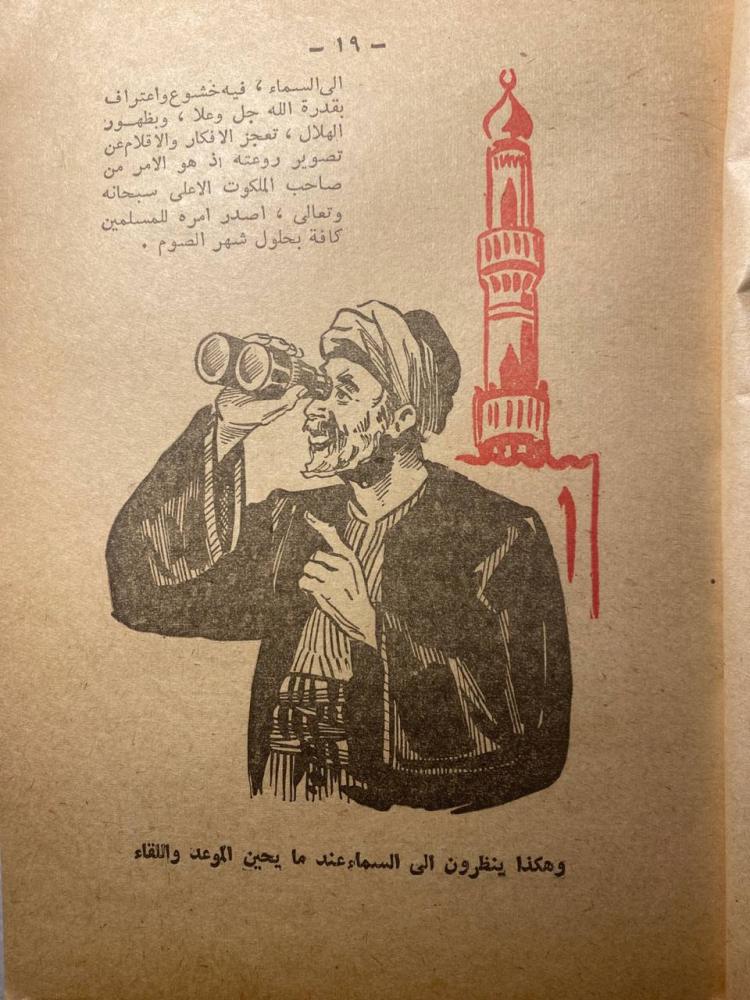 - ١٩ -
الى السماء ، فيه خشوع واعتراف
بقدرة الله جل وعلا ، وبظهور
الهلال ، تعجز الافكار والاقلام عن
تصوير روعته اذ هو الامر من
صاحب الملكوت الاعلى سبحانه
وتعالى ، اصدر امره للمسلمين
كافة بحلول شهر الصوم .
وهكذا ينظرون الى السماء عند ما يحين الموعد واللقاء